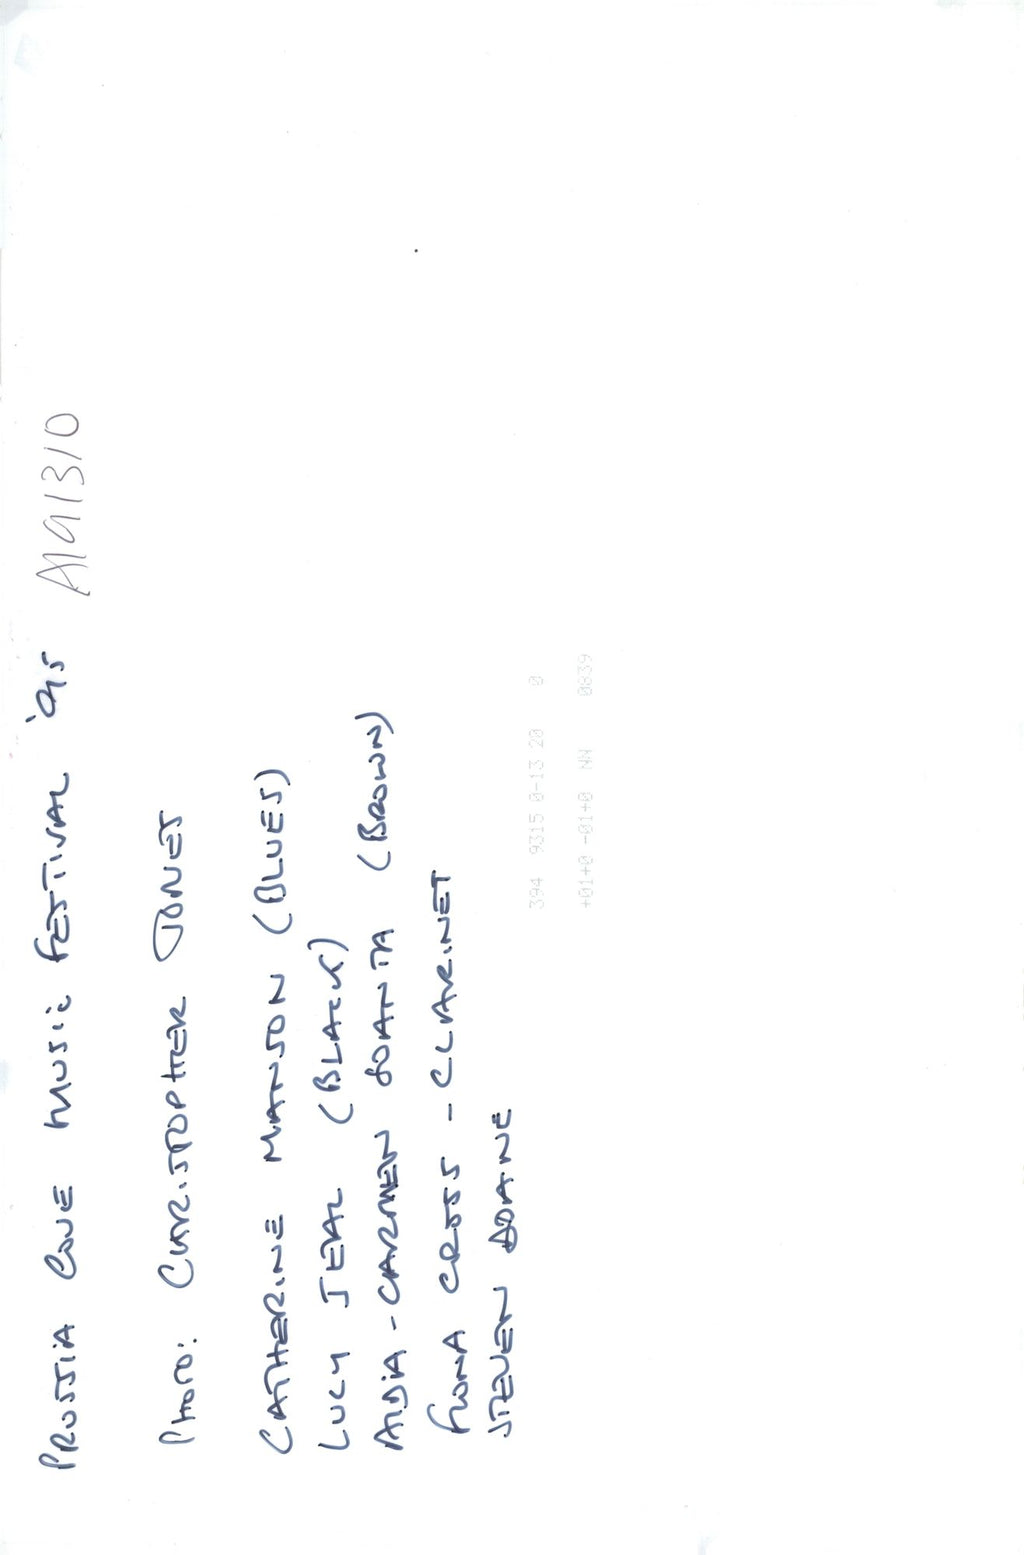 PRUSSIA COVE MUSIC FESTIVAL '95 A191310
PHOTO: CHRISTOPHER JONES
CATHERINE MANSON (BLUES)
LUCY JEAL (BLACK)
ALDIA-CARMEN (BROWN)
FIONA CROSS - CLARINET
STEVEN DOANE
394 9315 0-13 20 0
+01+0 -01+0 NN 0839